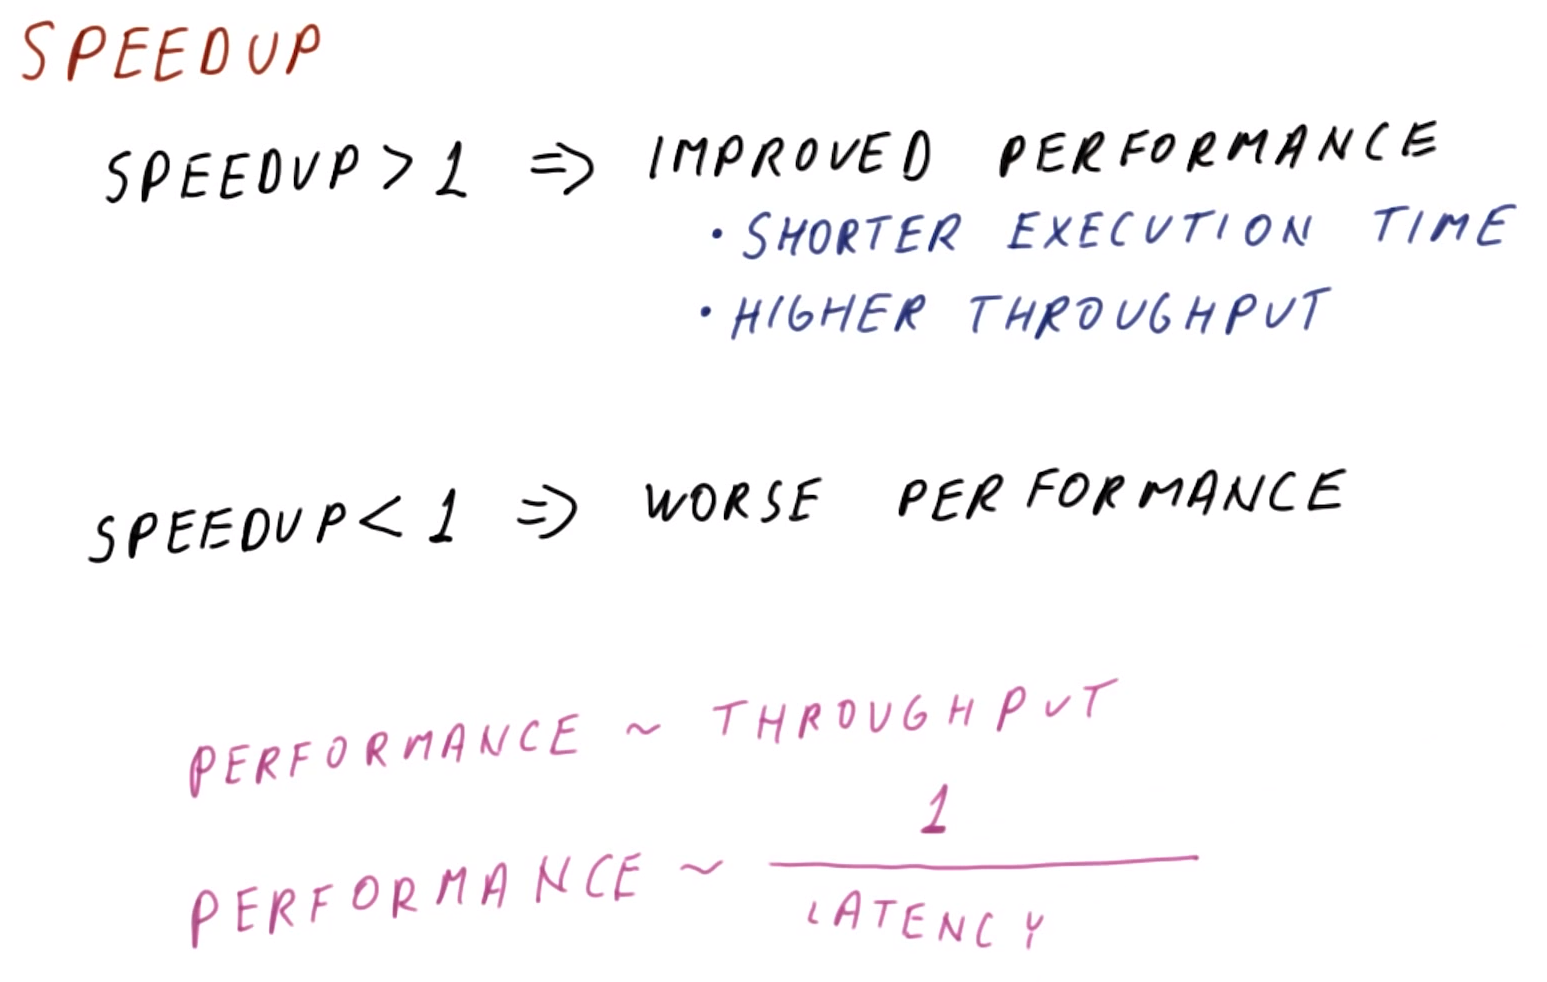 SPEEDUP
SPEEDUP > 1 => IMPROVED PERFORMANCE
• SHORTER EXECUTION TIME
• HIGHER THROUGHPUT
SPEEDUP < 1 => WORSE PERFORMANCE
PERFORMANCE ~ THROUGHPUT
1
PERFORMANCE ~
LATENCY